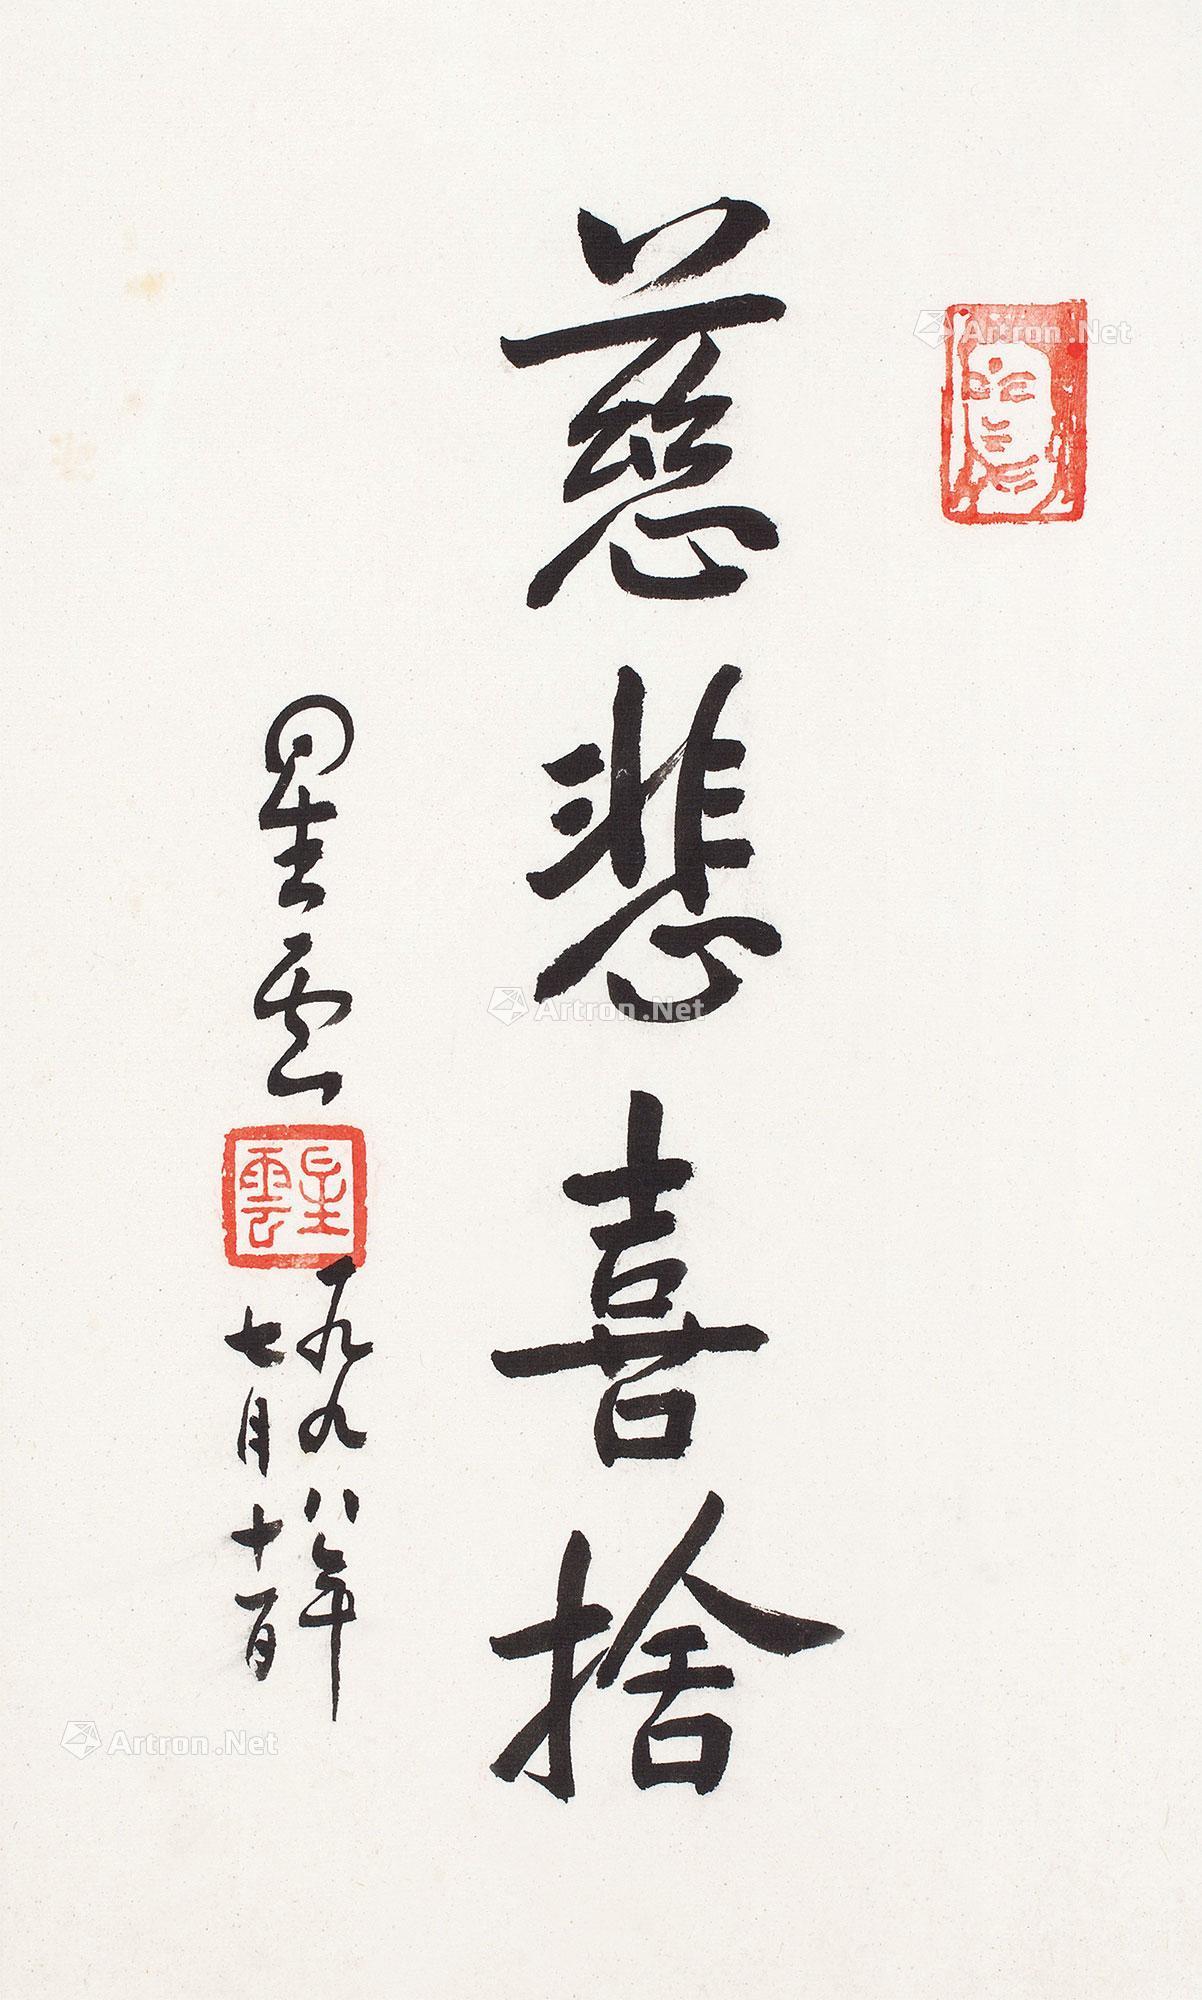 慈悲喜捨
星雲
星雲
一九九八年
七月十一日
Artron.Net
Artron.Net
Artron.Net